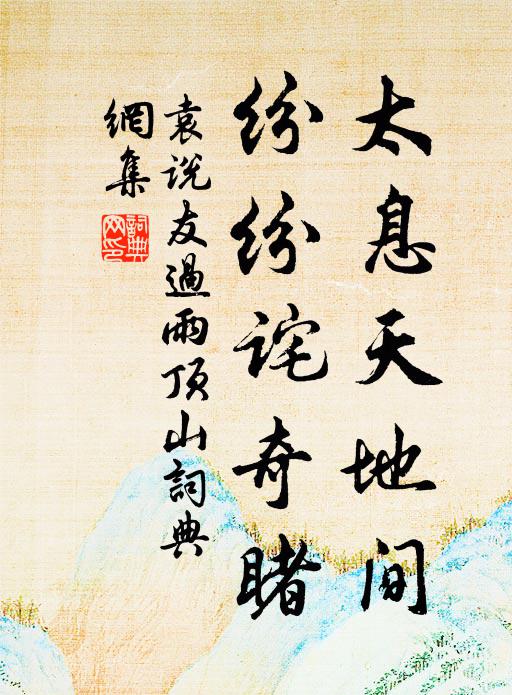 太息天地间
纷纷诧奇睹
袁说友过雨顶山词典
網集
詞典
网印